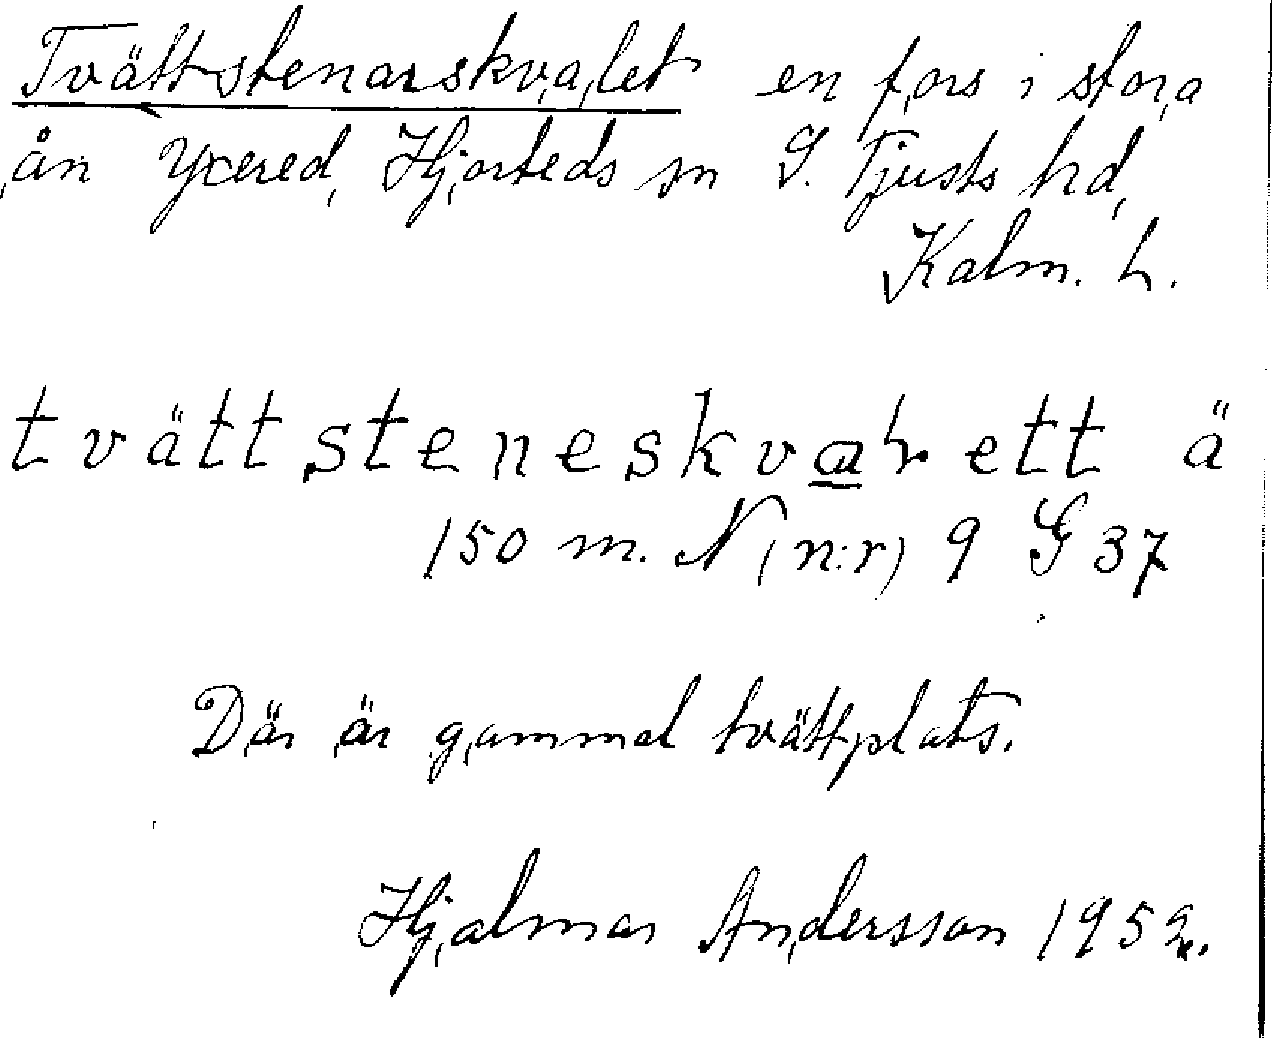 Tvättstenarskvalet en fors i stora
ån Yxered, Hjorteds sn S. Tjusts hd,
Kalm. L.
tvättsteneskvaɽett ä
150 m. N (n:r) 9 G 37
Där är gammel tvättplats.
Hjalmar Andersson 1952.